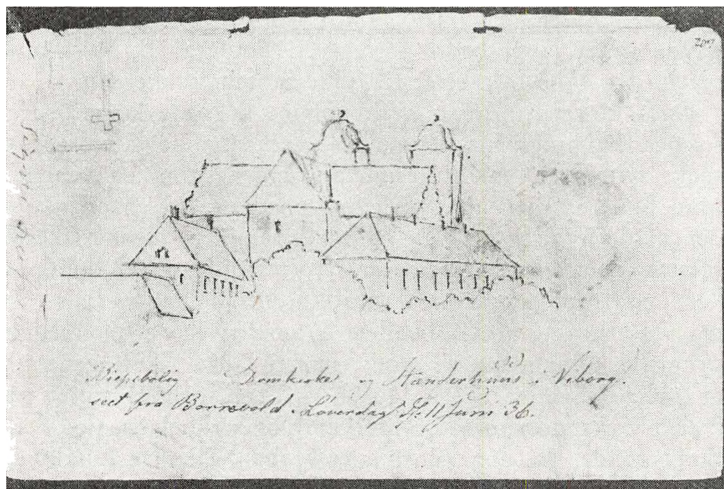 207
Bispebolig Domkirke og Stænderhuus i Viborg.
seet fra Borrevold. Løverdag d: 11 Juni 36.